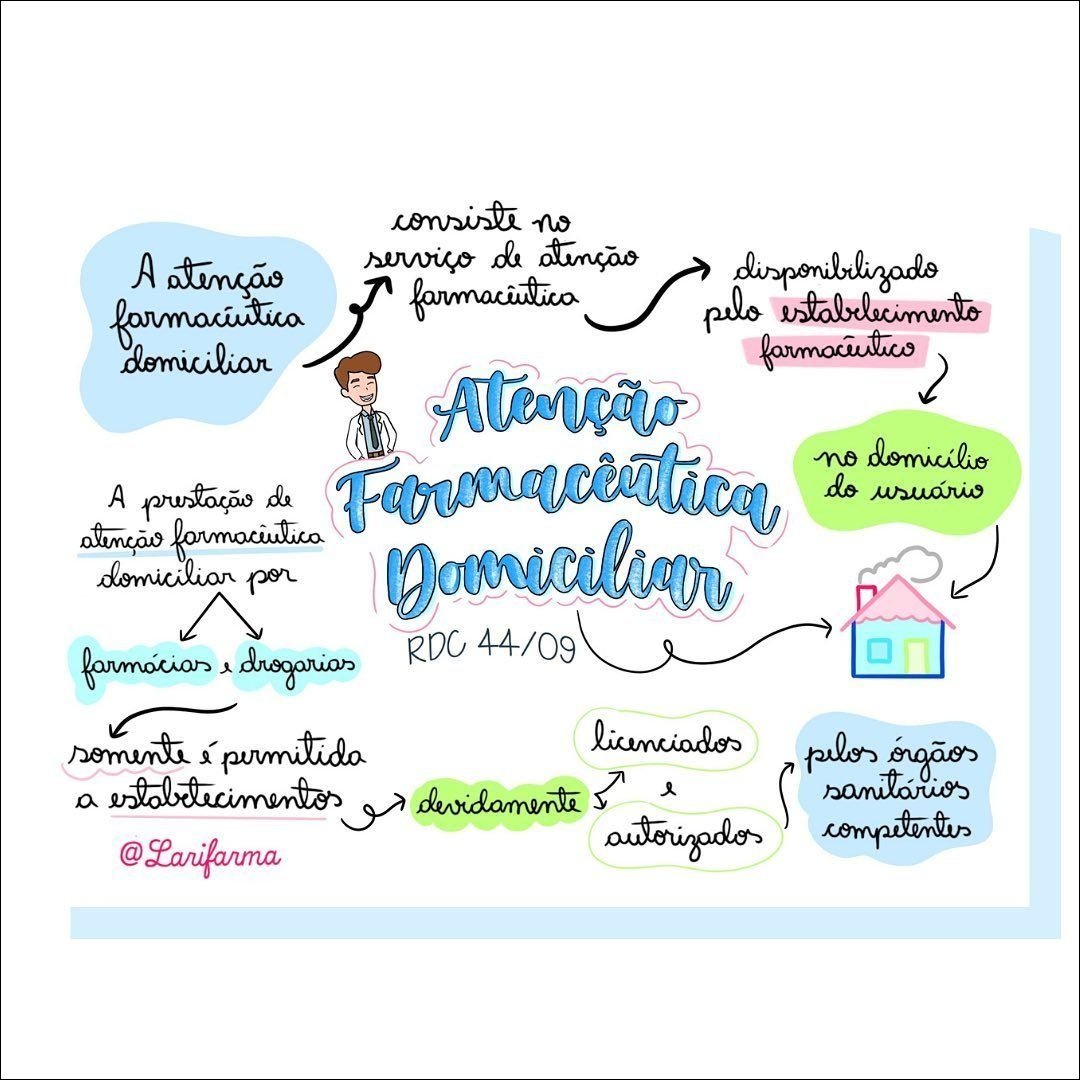 A atenção
farmacêutica
domiciliar
consiste no
serviço de atenção
farmacêutica
disponibilizado
pelo estabelecimento
farmacêutico
no domicílio
do usuário
Atenção
Farmacêutica
Domiciliar
RDC 44/09
A prestação de
atenção farmacêutica
domiciliar por
farmácias e drogarias
somente é permitida
a estabelecimentos
devidamente
licenciados
e
autorizados
pelos órgãos
sanitários
competentes
@Larifarma